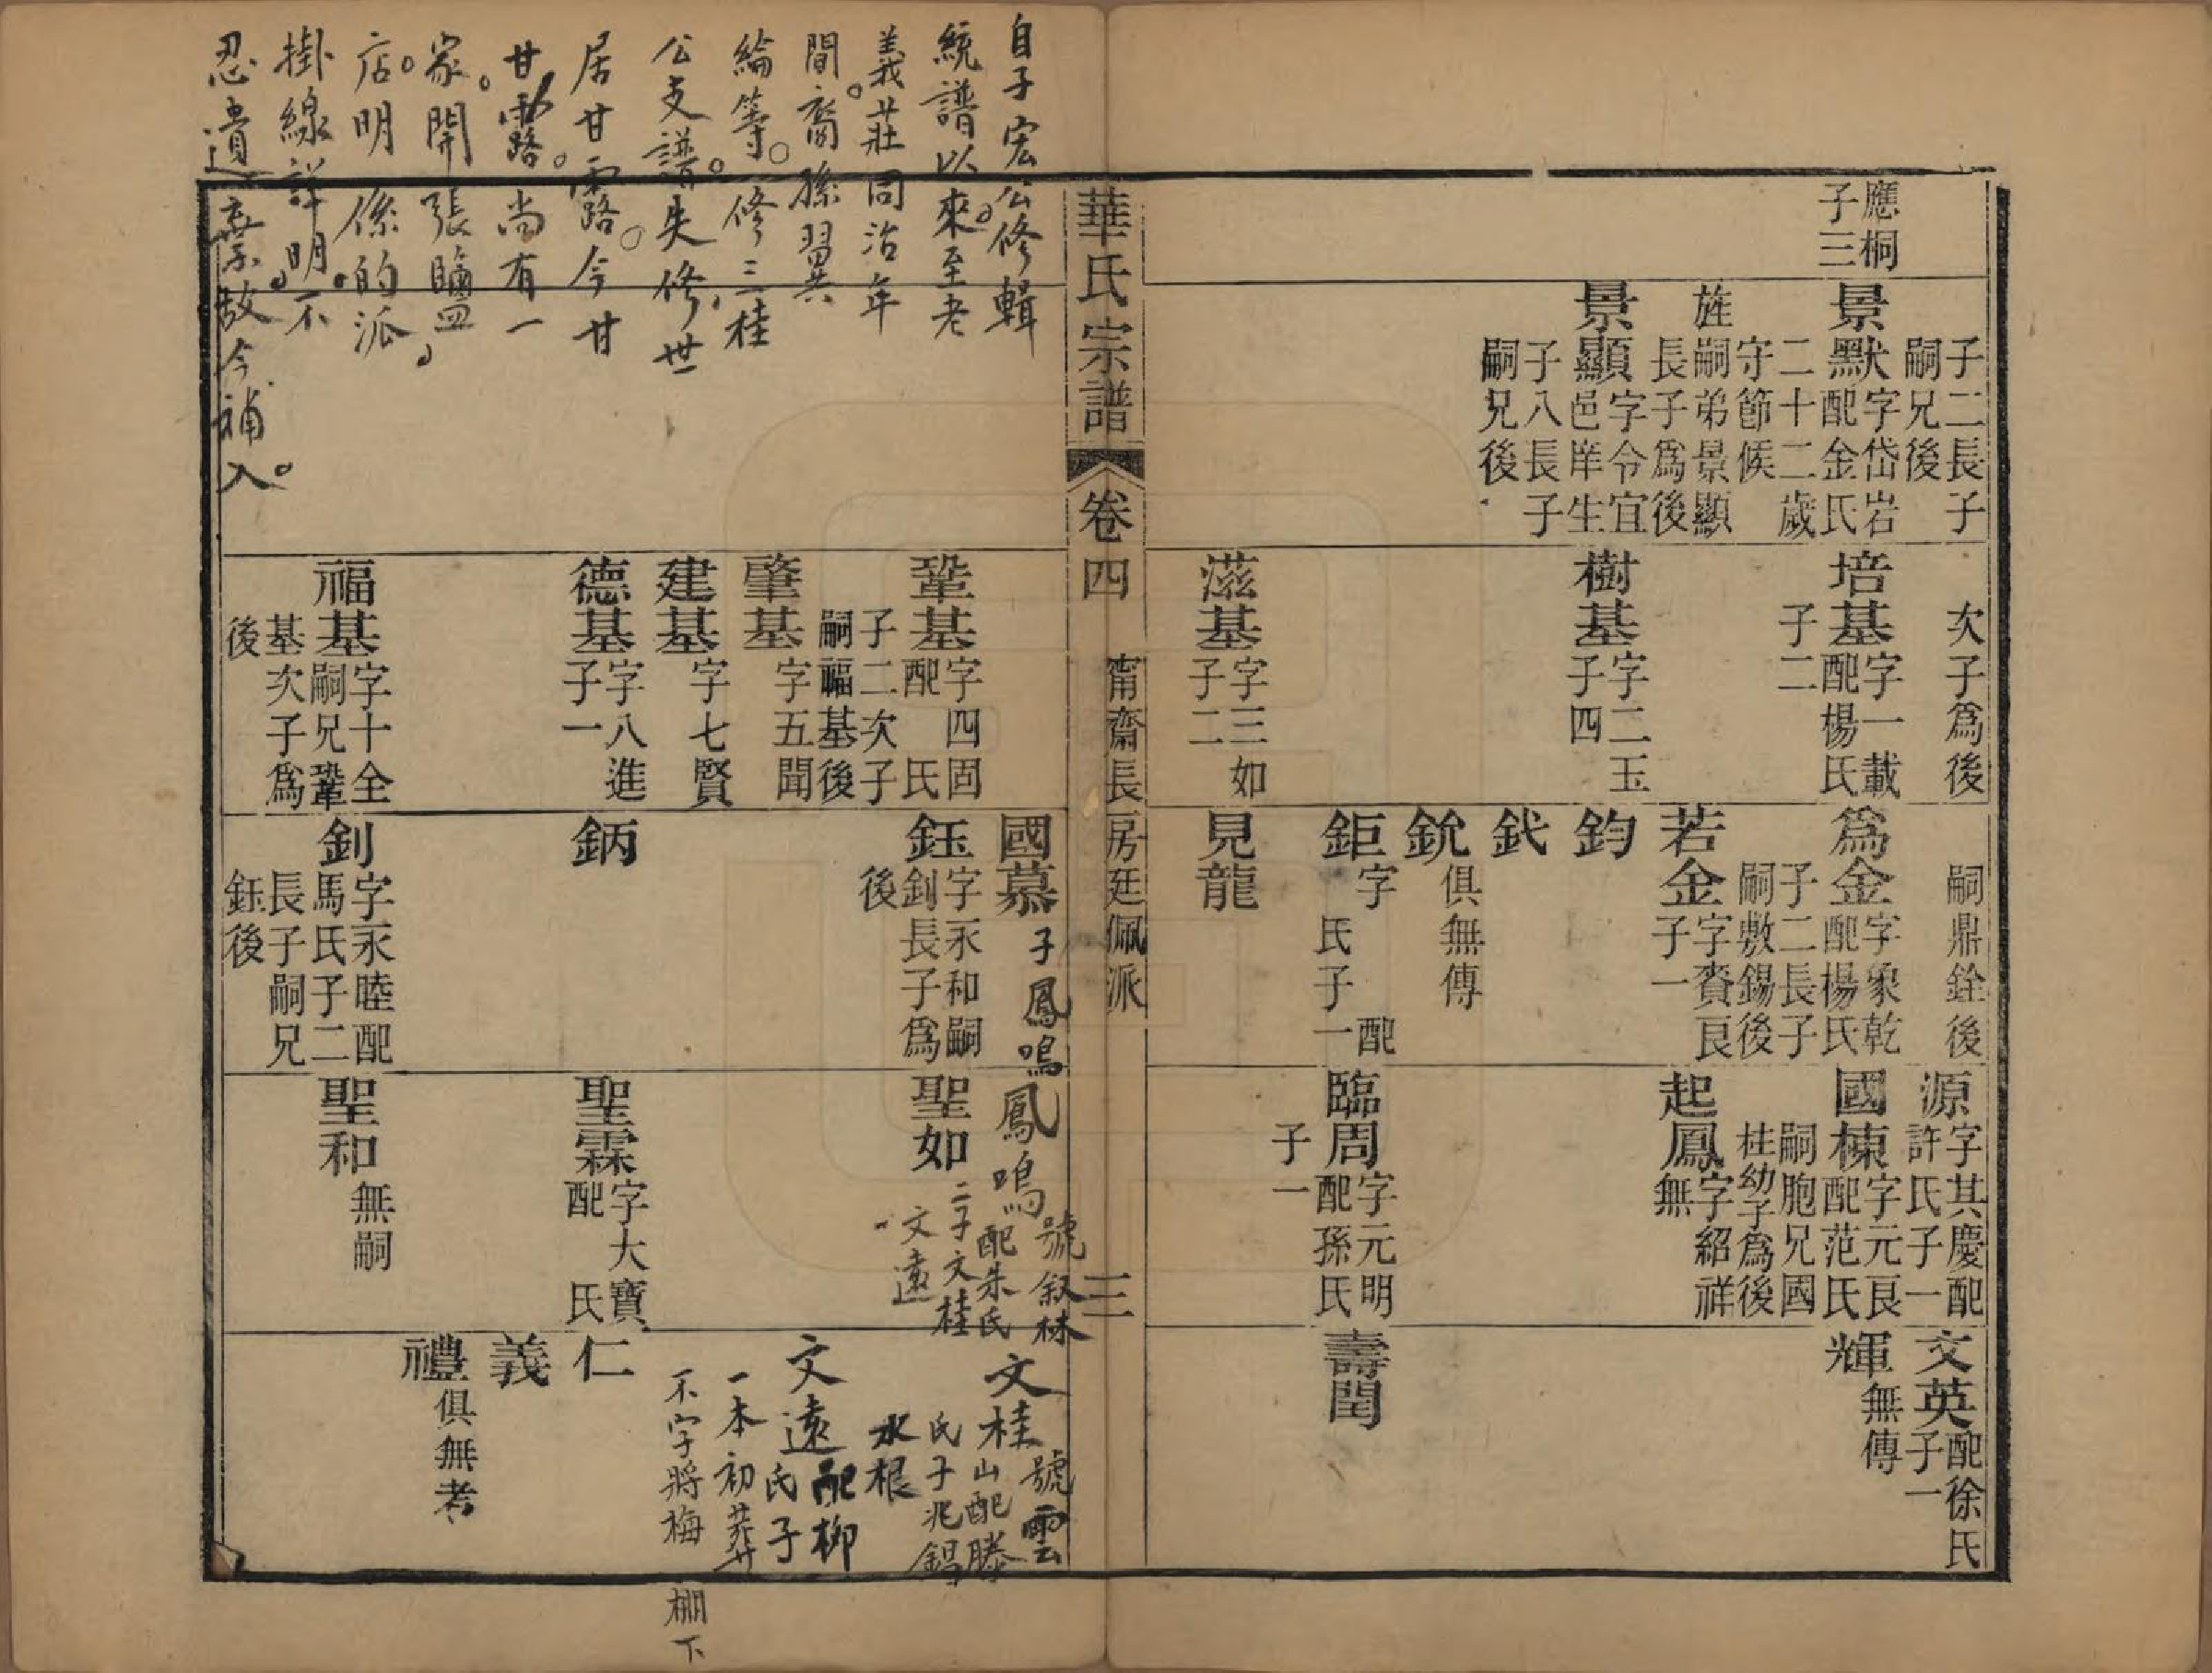 應桐
子三
子二長子
嗣兄後
景默字岱岩
配金氏
二十二歲
守節候
旌嗣弟景顯
長子爲後
景顯字令宜
邑庠生
子八長子
嗣兄後
次子爲後
培基字一載
配楊氏
子二
樹基字二玉
子四
滋基字三如
子二
嗣鼎銓後
爲金字象乾
配楊氏
子二長子
嗣敷錫後
若金字賚良
子一
鈞
釴
銳俱無傳
鉅字 配
氏子一
見龍
源字其慶配
許氏子一
國棟字元良
配范氏
嗣胞兄國
柱幼子爲後
起鳳字紹祥
無
臨周字元明
配孫氏
子一
文英配徐氏
子一
輝無傳
壽閏
華氏宗譜 卷四 甯齋長房廷佩派 三
自子宏公修輯
統譜以來至老
義莊同治年
間裔孫翼
綸等修三桂
公支譜失修世
居甘露今甘
甘露尚有一
家開張鹽
店明係的派
掛線詳明不
忍遺棄故今補
入
鞏基字四固
配 氏
子二次子
嗣福基後
肇基字五聞
建基字七賢
德基字八進
子一
福基字十全
嗣兄鞏
基次子爲
後
國慕子鳳鳴
鈺字永和嗣
釗長子爲
後
鈵
釗字永睦配
馬氏子二
長子嗣兄
鈺後
鳳鳴號叙林
配朱氏
二子文桂
文遠
聖如
聖霖字大寶
配 氏
聖和無嗣
文桂號雲
山配滕
氏子兆錫
水根
文遠配柳
氏子
一本初葬
不字將梅
棚下
仁
義
禮俱無考